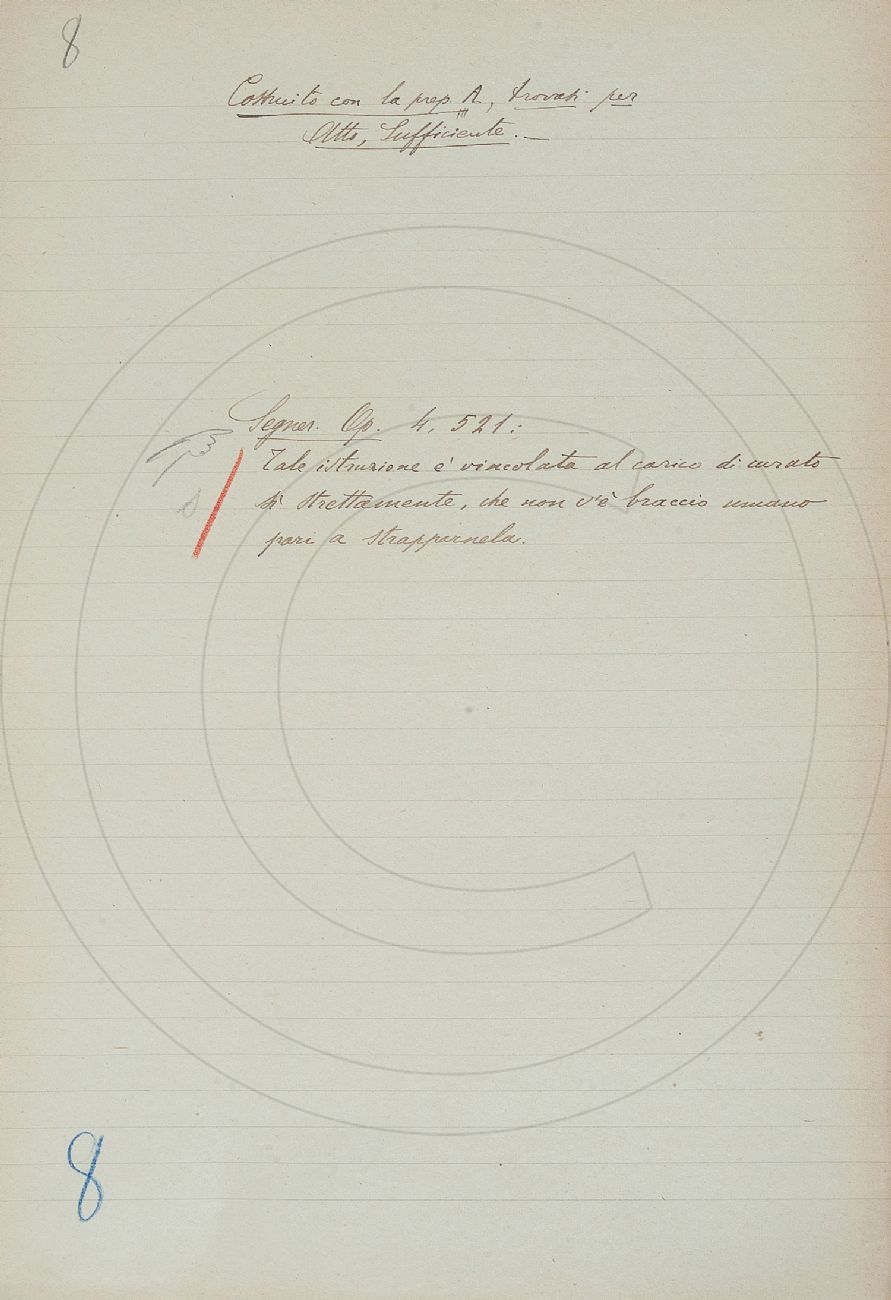 8
Costruito con la prep. A, trovasi per
Atto, Sufficiente. —
Segner. Op. 4. 521:
Tale istruzione è vincolata al carico di curato
sì strettamente, che non v'è braccio umano
pari a strapparnela.
8